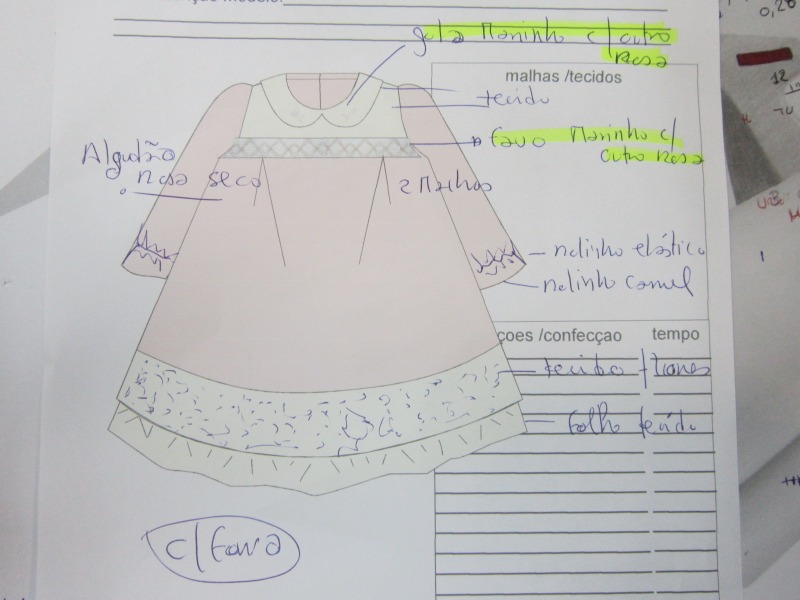 modelo:
gola Maninho c/ outro
Rosa
malhas /tecidos
tecido
favo Maninho c/
outro Rosa
Algodão
Rosa seco
2 Machos
Rolinho elástico
Rolinho comel
coes /confecçao tempo
tecido
folho tecido
c/ Fava
0,20
12